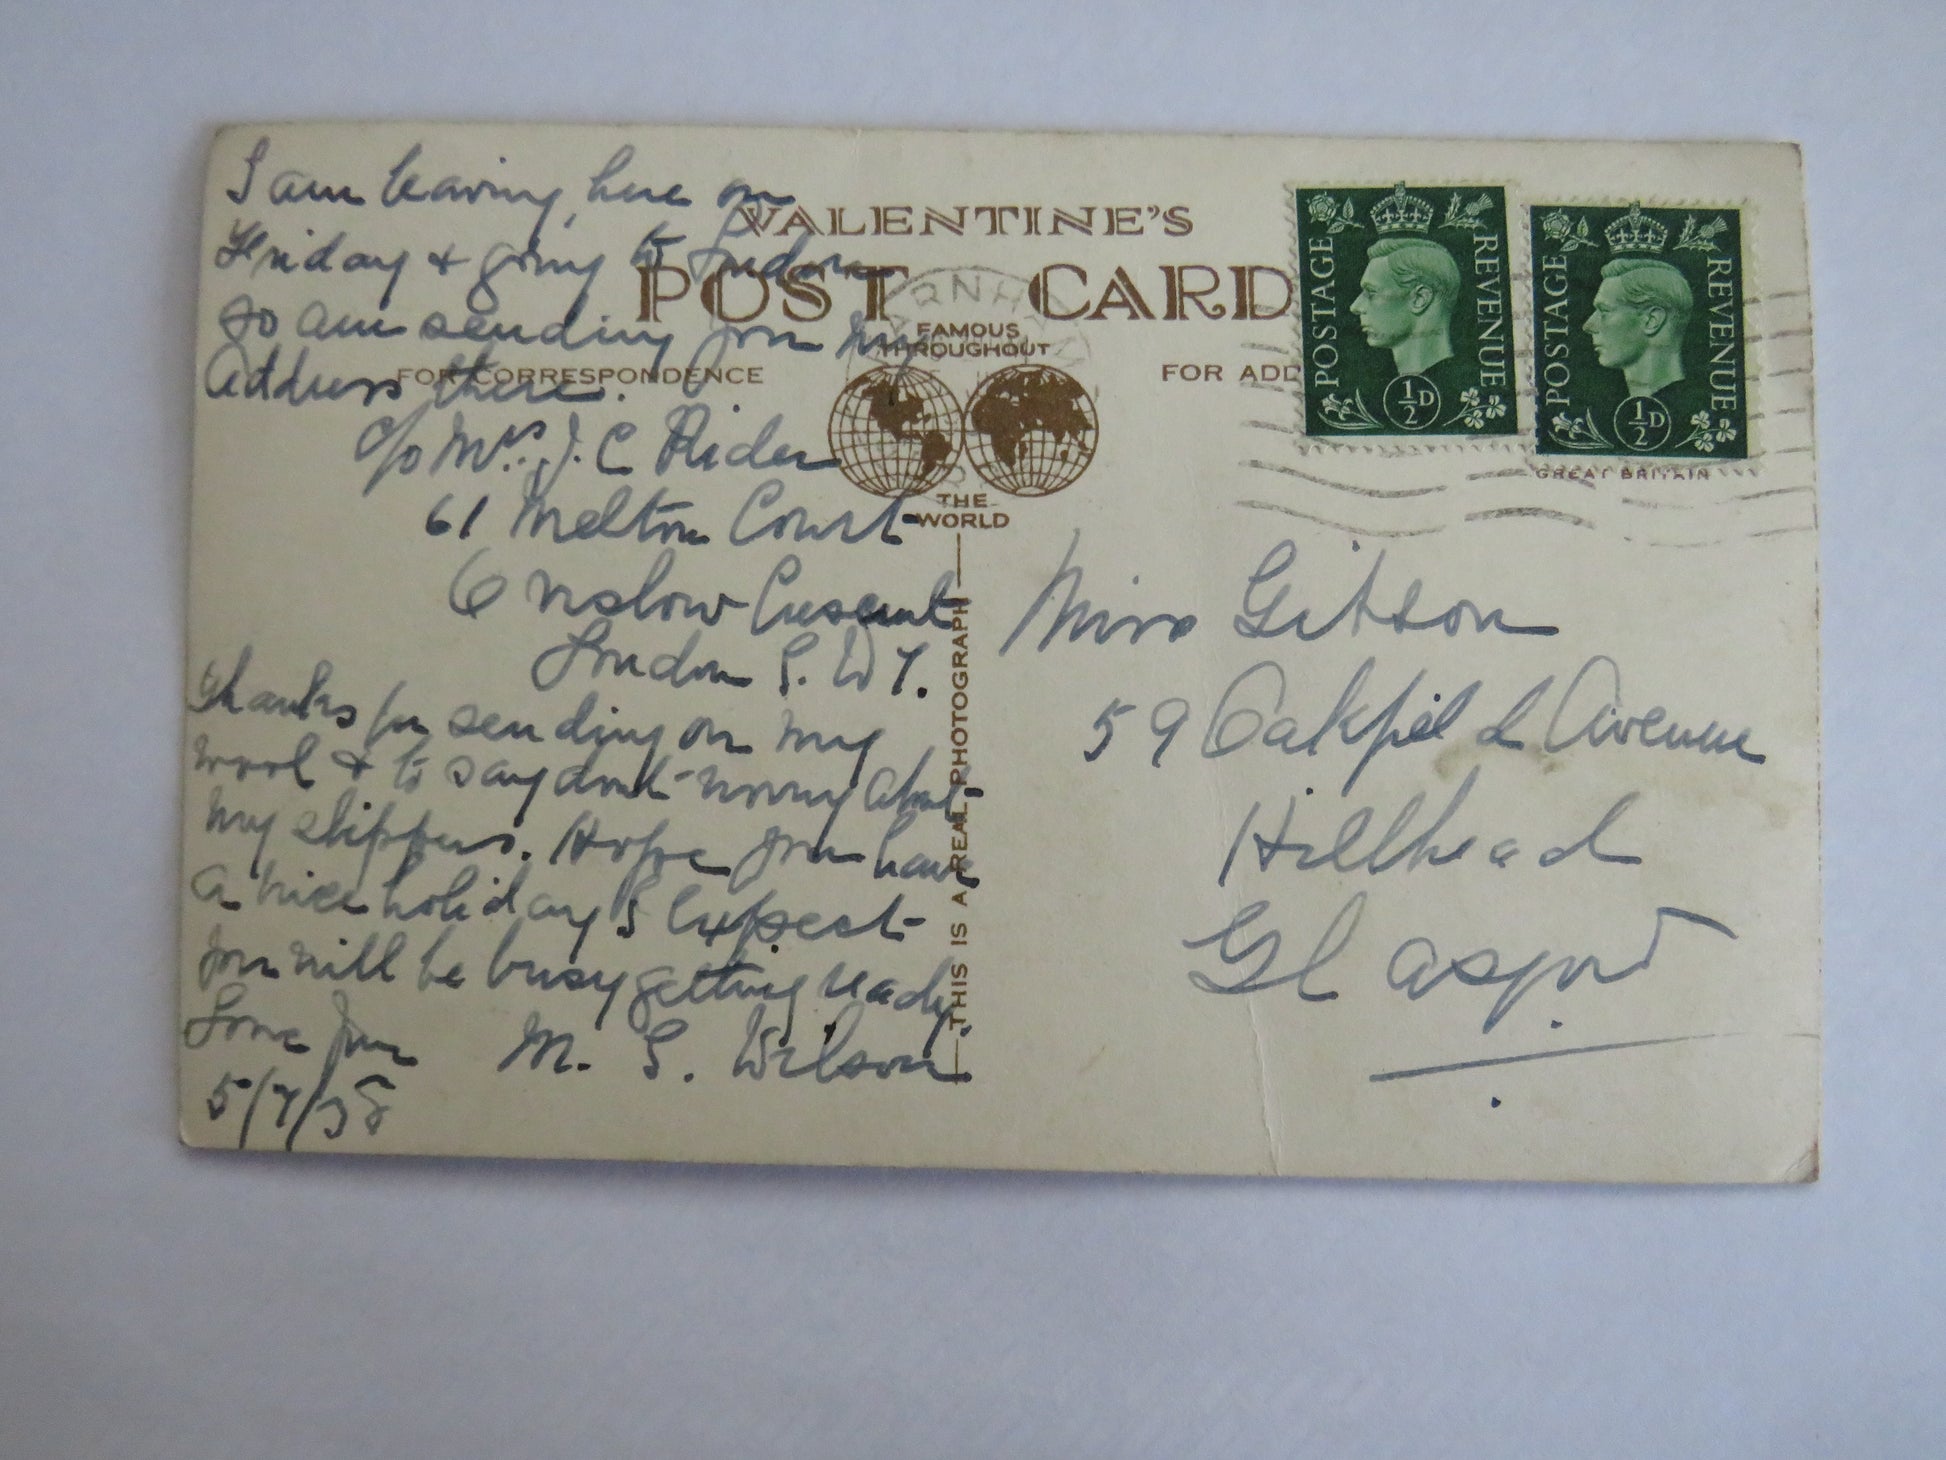 I am leaving here on
Friday & going to London
so am sending you my
address there.
c/o Mrs. J. C Rider
61 Melton Court
Onslow Crescent
London S. W 7.
Thanks for sending on my
wool & to say dont worry about
my slippers. Hope you have
a nice holiday I expect
you will be busy getting ready.
Love
M. S. Wilson
5/7/38
VALENTINE'S
POST CARD
FAMOUS
THROUGHOUT
THE
WORLD
FOR CORRESPONDENCE
FOR ADD
THIS IS A REAL PHOTOGRAPH
POSTAGE REVENUE
½D
POSTAGE REVENUE
½D
GREAT BRITAIN
Miss Gibson
59 Oakfield Avenue
Hillhead
Glasgow